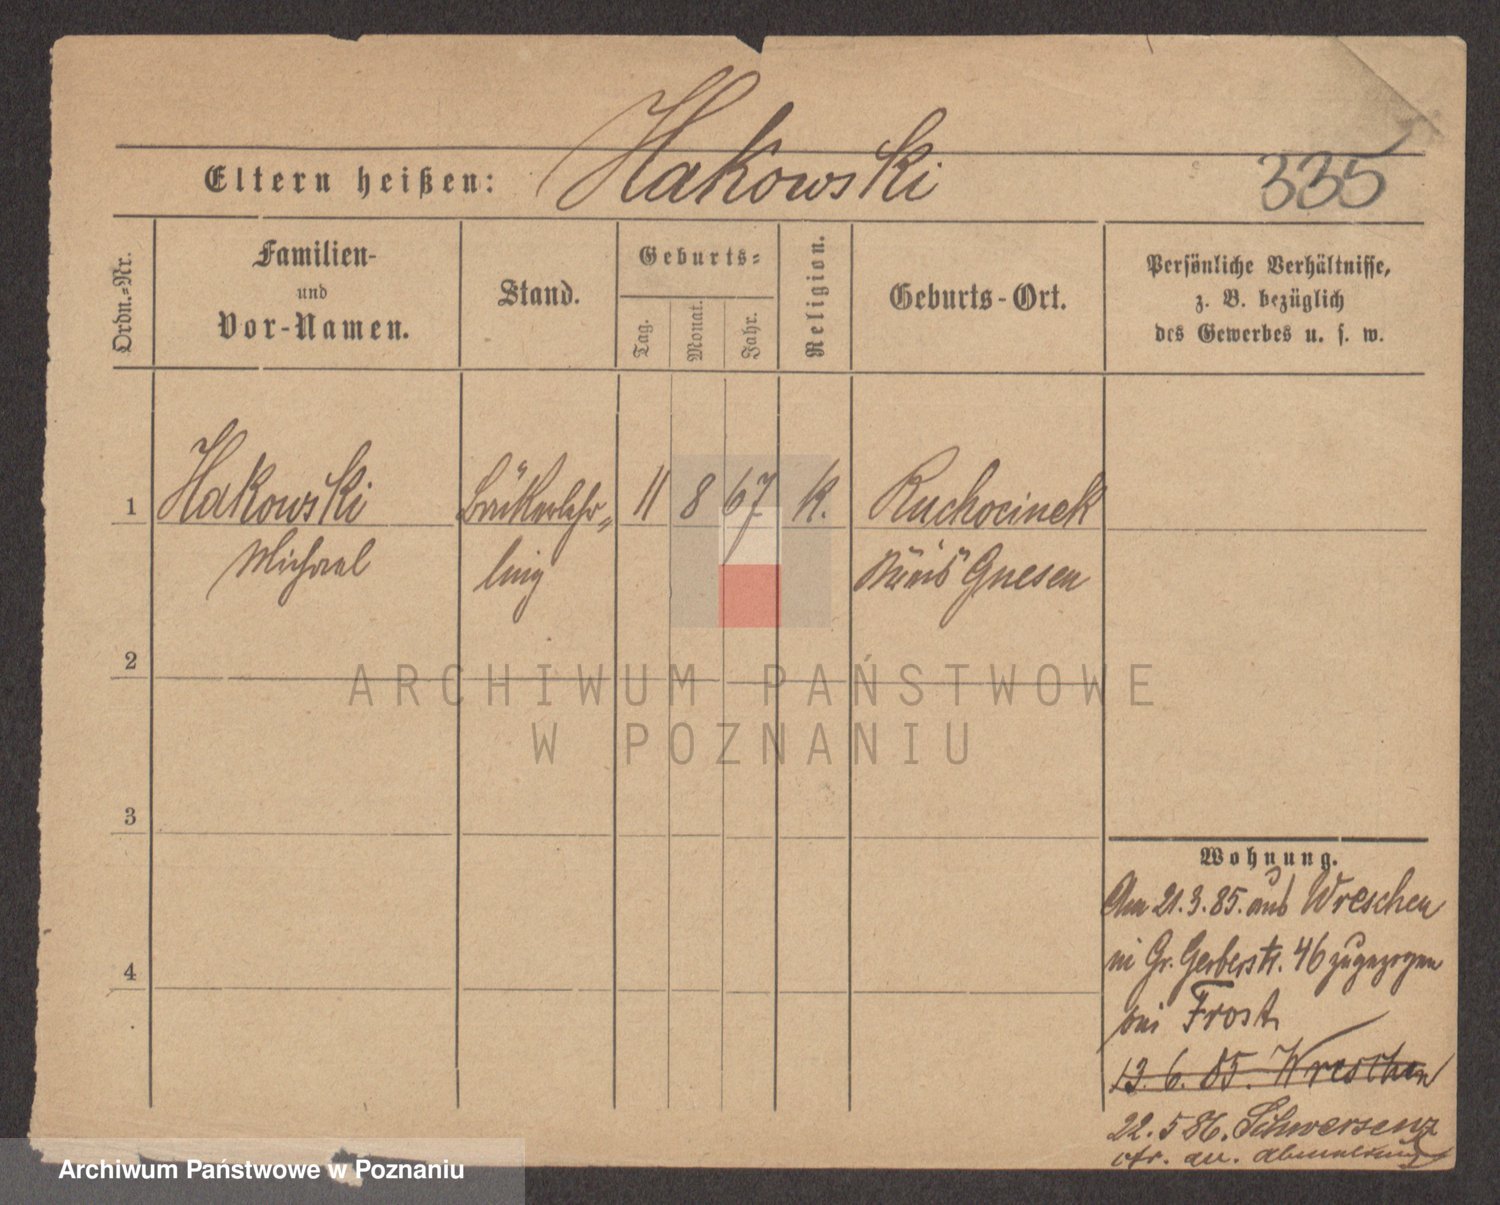 Hakowski
Eltern heißen:
335
Ordn.-Nr.
Familien-
und
Vor-Namen.
Stand.
Geburts-
Tag.
Monat.
Jahr.
Religion.
Geburts-Ort.
Persönliche Verhältnisse,
z. B. bezüglich
des Gewerbes u. s. w.
1 Hakowski Bäckerlehr- 11 8 67 K. Ruchocinek
Michael ling Kreis Gnesen
2
ARCHIWUM PAŃSTWOWE
W POZNANIU
3
4
Wohnung.
Am 21.3.85. aus Wreschen
in Gr. Gerberstr. 46 zugezogen
bei Frost
13. 6. 85. Wreschen
22. 5 86. Schwersenz
cfr. an. Abmeldung
Archiwum Państwowe w Poznaniu